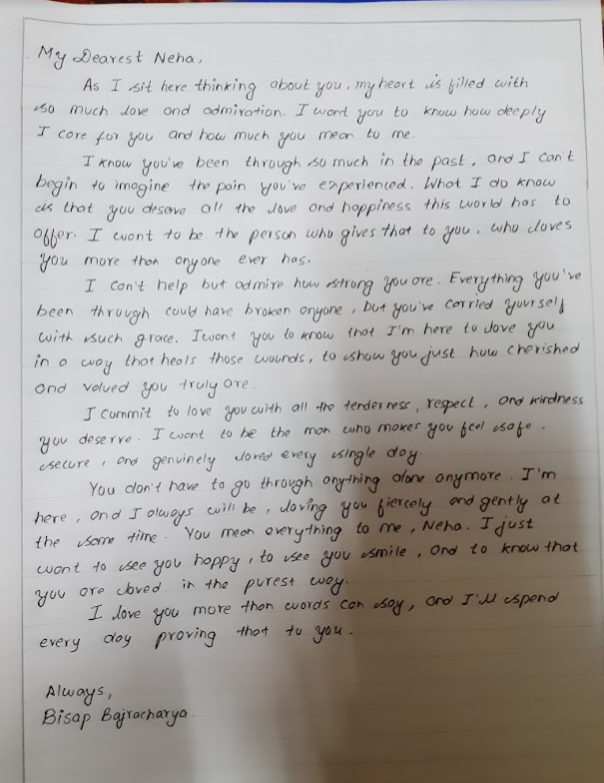 My Dearest Neha,
As I sit here thinking about you, my heart is filled with
so much love and admiration. I want you to know how deeply
I care for you and how much you mean to me.
I know you've been through so much in the past, and I can't
begin to imagine the pain you've experienced. What I do know
is that you deserve all the love and happiness this world has to
offer. I want to be the person who gives that to you, who loves
you more than anyone ever has.
I can't help but admire how strong you are. Everything you've
been through could have broken anyone, but you've carried yourself
with such grace. I want you to know that I'm here to love you
in a way that heals those wounds, to show you just how cherished
and valued you truly are.
I commit to love you with all the tenderness, respect, and kindness
you deserve. I want to be the man who makes you feel safe,
secure, and genuinely loved every single day.
You don't have to go through anything alone anymore. I'm
here, and I always will be, loving you fiercely and gently at
the same time. You mean everything to me, Neha. I just
want to see you happy, to see you smile, and to know that
you are loved in the purest way.
I love you more than words can say, and I'll spend
every day proving that to you.
Always,
Bisap Bajracharya